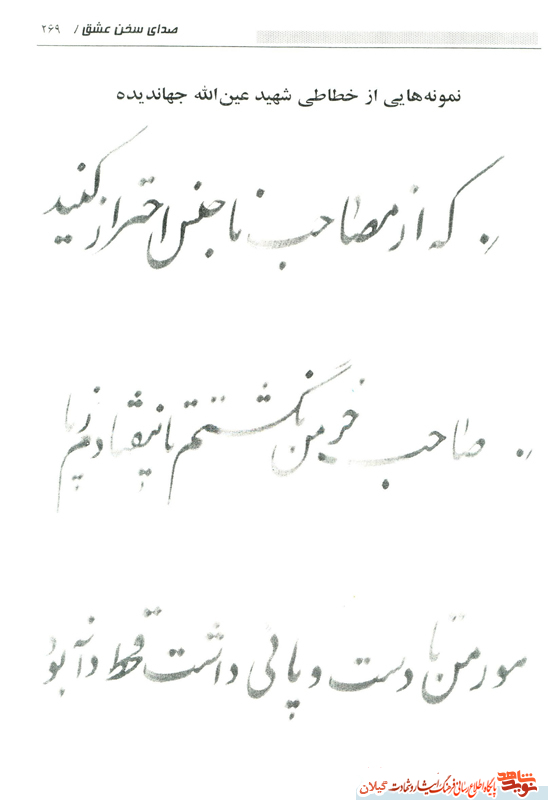 صدای سخن عشق / ۲۶۹
نمونه‌هایی از خطاطی شهید عین‌الله جهاندیده
که از مصاحب ناجنس احتراز کنید
صاحب خرمن نگشتم تا نیفتادم ز پا
مور من تا دست و پائی داشت قحط دانه بود
نوید شاهد
پایگاه اطلاع رسانی فرهنگ ایثار و شهادت گیلان